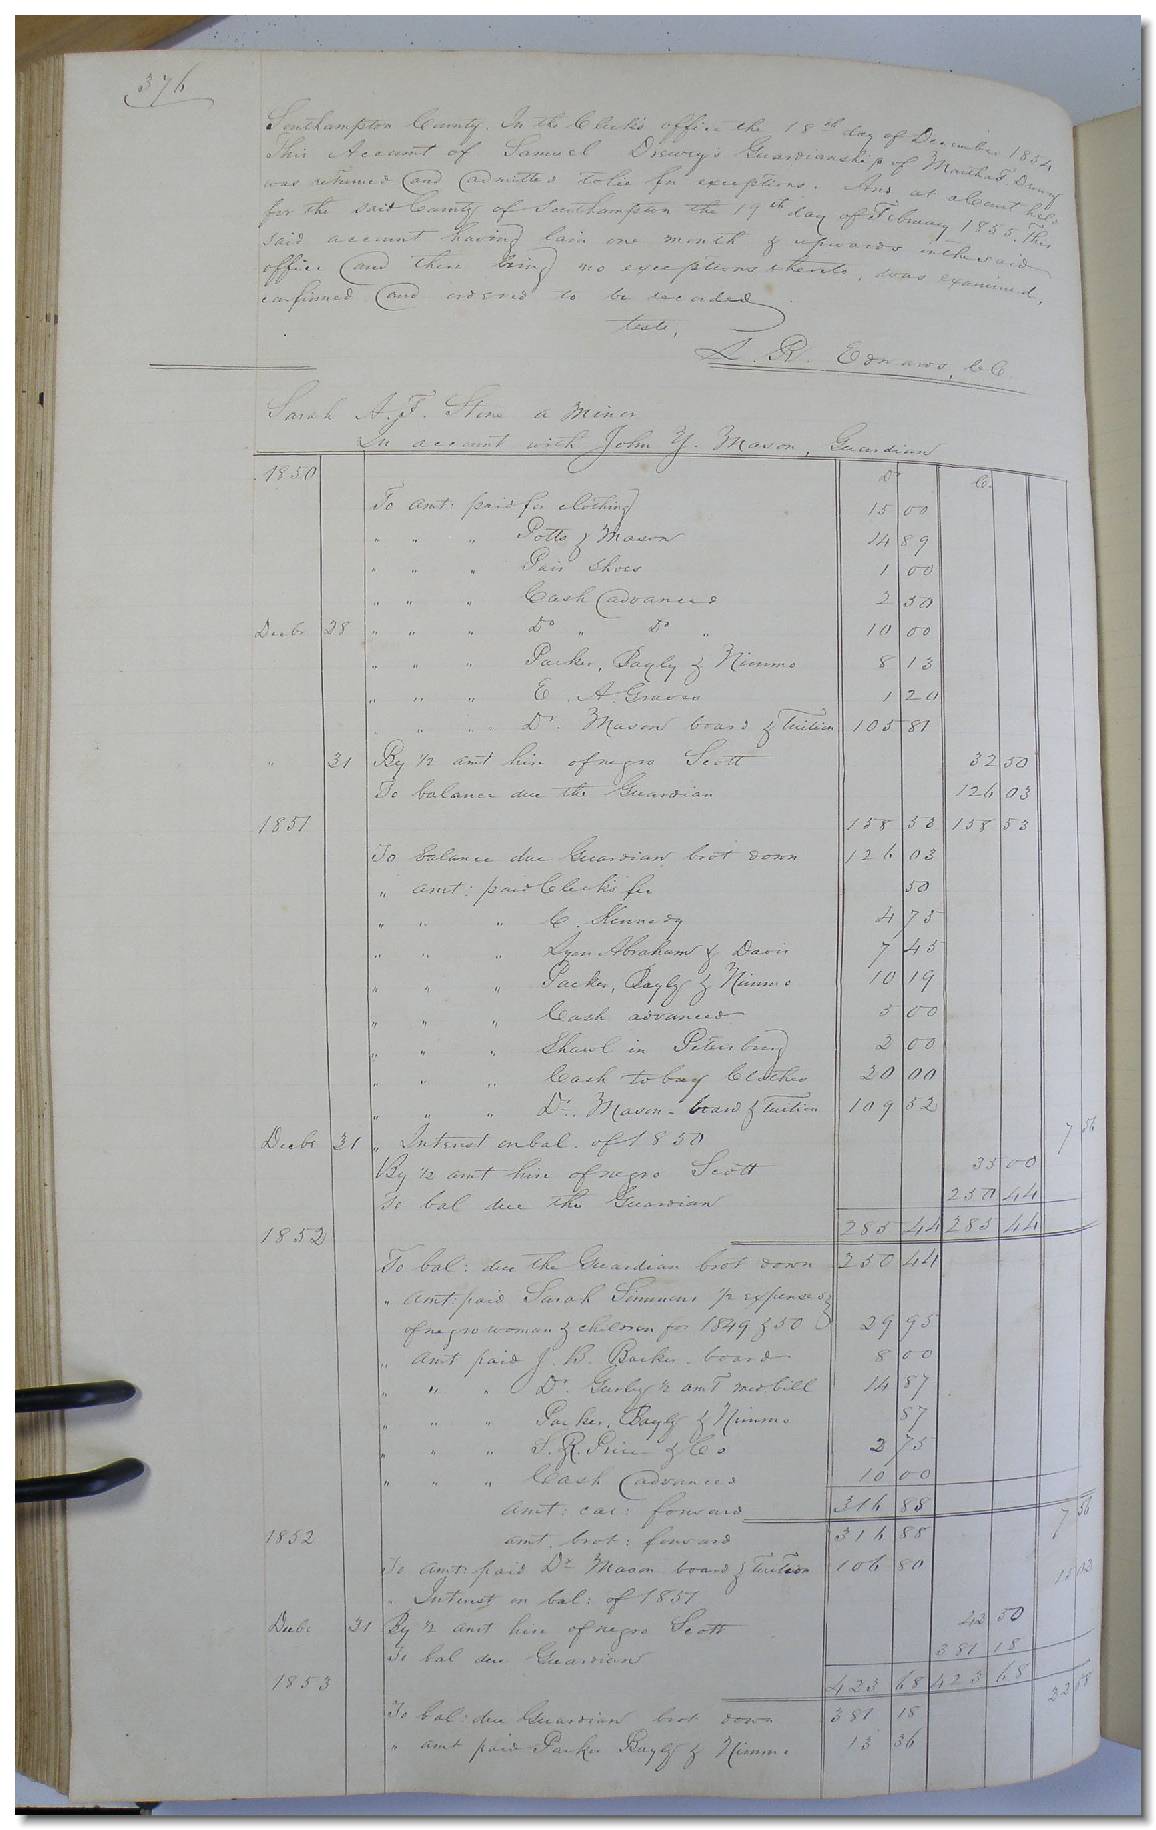 376
Southampton County. In the Clerk's office the 18th day of December 1854
This Account of Samuel Drewry's Guardianship of Martha T Drewry
was returned and admitted to lie for exceptions. And at a Court held
for the said County of Southampton the 19th day of February 1855. This
said account having lain one month & upwards in the said
office and there being no exceptions thereto, was examined,
confirmed and ordered to be recorded
teste,
L. R. Edwards, C.C.
Sarah A. F. Stone a Minor
In account with John Y. Mason, Guardian
1850 Dr Cr
To amt: paid for clothing 15 00
" " " Potts & Mason 14 89
" " " Pair Shoes 1 00
" " " Cash advanced 2 50
Decbr 28 " " " Do " Do " 10 00
" " " Parker, Bayly & Nimmo 8 13
" " " E. A. Graves 1 20
" " " Dr. Mason board & Tuition 105 81
" 31 By 1/2 amt hire of negro Scott 32 50
To balance due the Guardian 126 03
1851 158 53 158 53
To balance due Guardian brot down 126 03
" amt: paid Clerk's fee 50
" " " C. Kennedy 4 75
" " " Lyon Abraham & Davis 7 45
" " " Parker, Bayly & Nimmo 10 19
" " " Cash advanced 5 00
" " " Shawl in Petersburg 2 00
" " " Cash to buy Clothes 20 00
" " " Dr. Mason - board & Tuition 109 52
Decbr 31 " Interest on bal. of 1850 7 56
By 1/2 amt hire of negro Scott 35 00
To bal due the Guardian 250 44
1852 285 44 285 44
To bal: due the Guardian brot down 250 44
" amt: paid Sarah Simmons 1/2 expenses
of negro woman & children for 1849 & 50 29 95
" amt paid J. B. Barker - board 8 00
" " " Dr. Gurley 1/2 amt med bill 14 87
" " " Parker, Bayly & Nimmo 87
" " " S. R. Price & Co 2 75
" " " Cash advanced 10 00
amt: car: forward 316 88 7 56
1852 amt. brot: forward 316 88
To amt: paid Dr Mason board & Tuition 106 80
" Interest on bal: of 1851 15 02
Decbr 31 By 1/2 amt hire of negro Scott 42 50
To bal due Guardian 381 18
1853 423 68 423 68 22 58
To bal: due Guardian brot down 381 18
" amt paid Parker Bayly & Nimmo 13 36